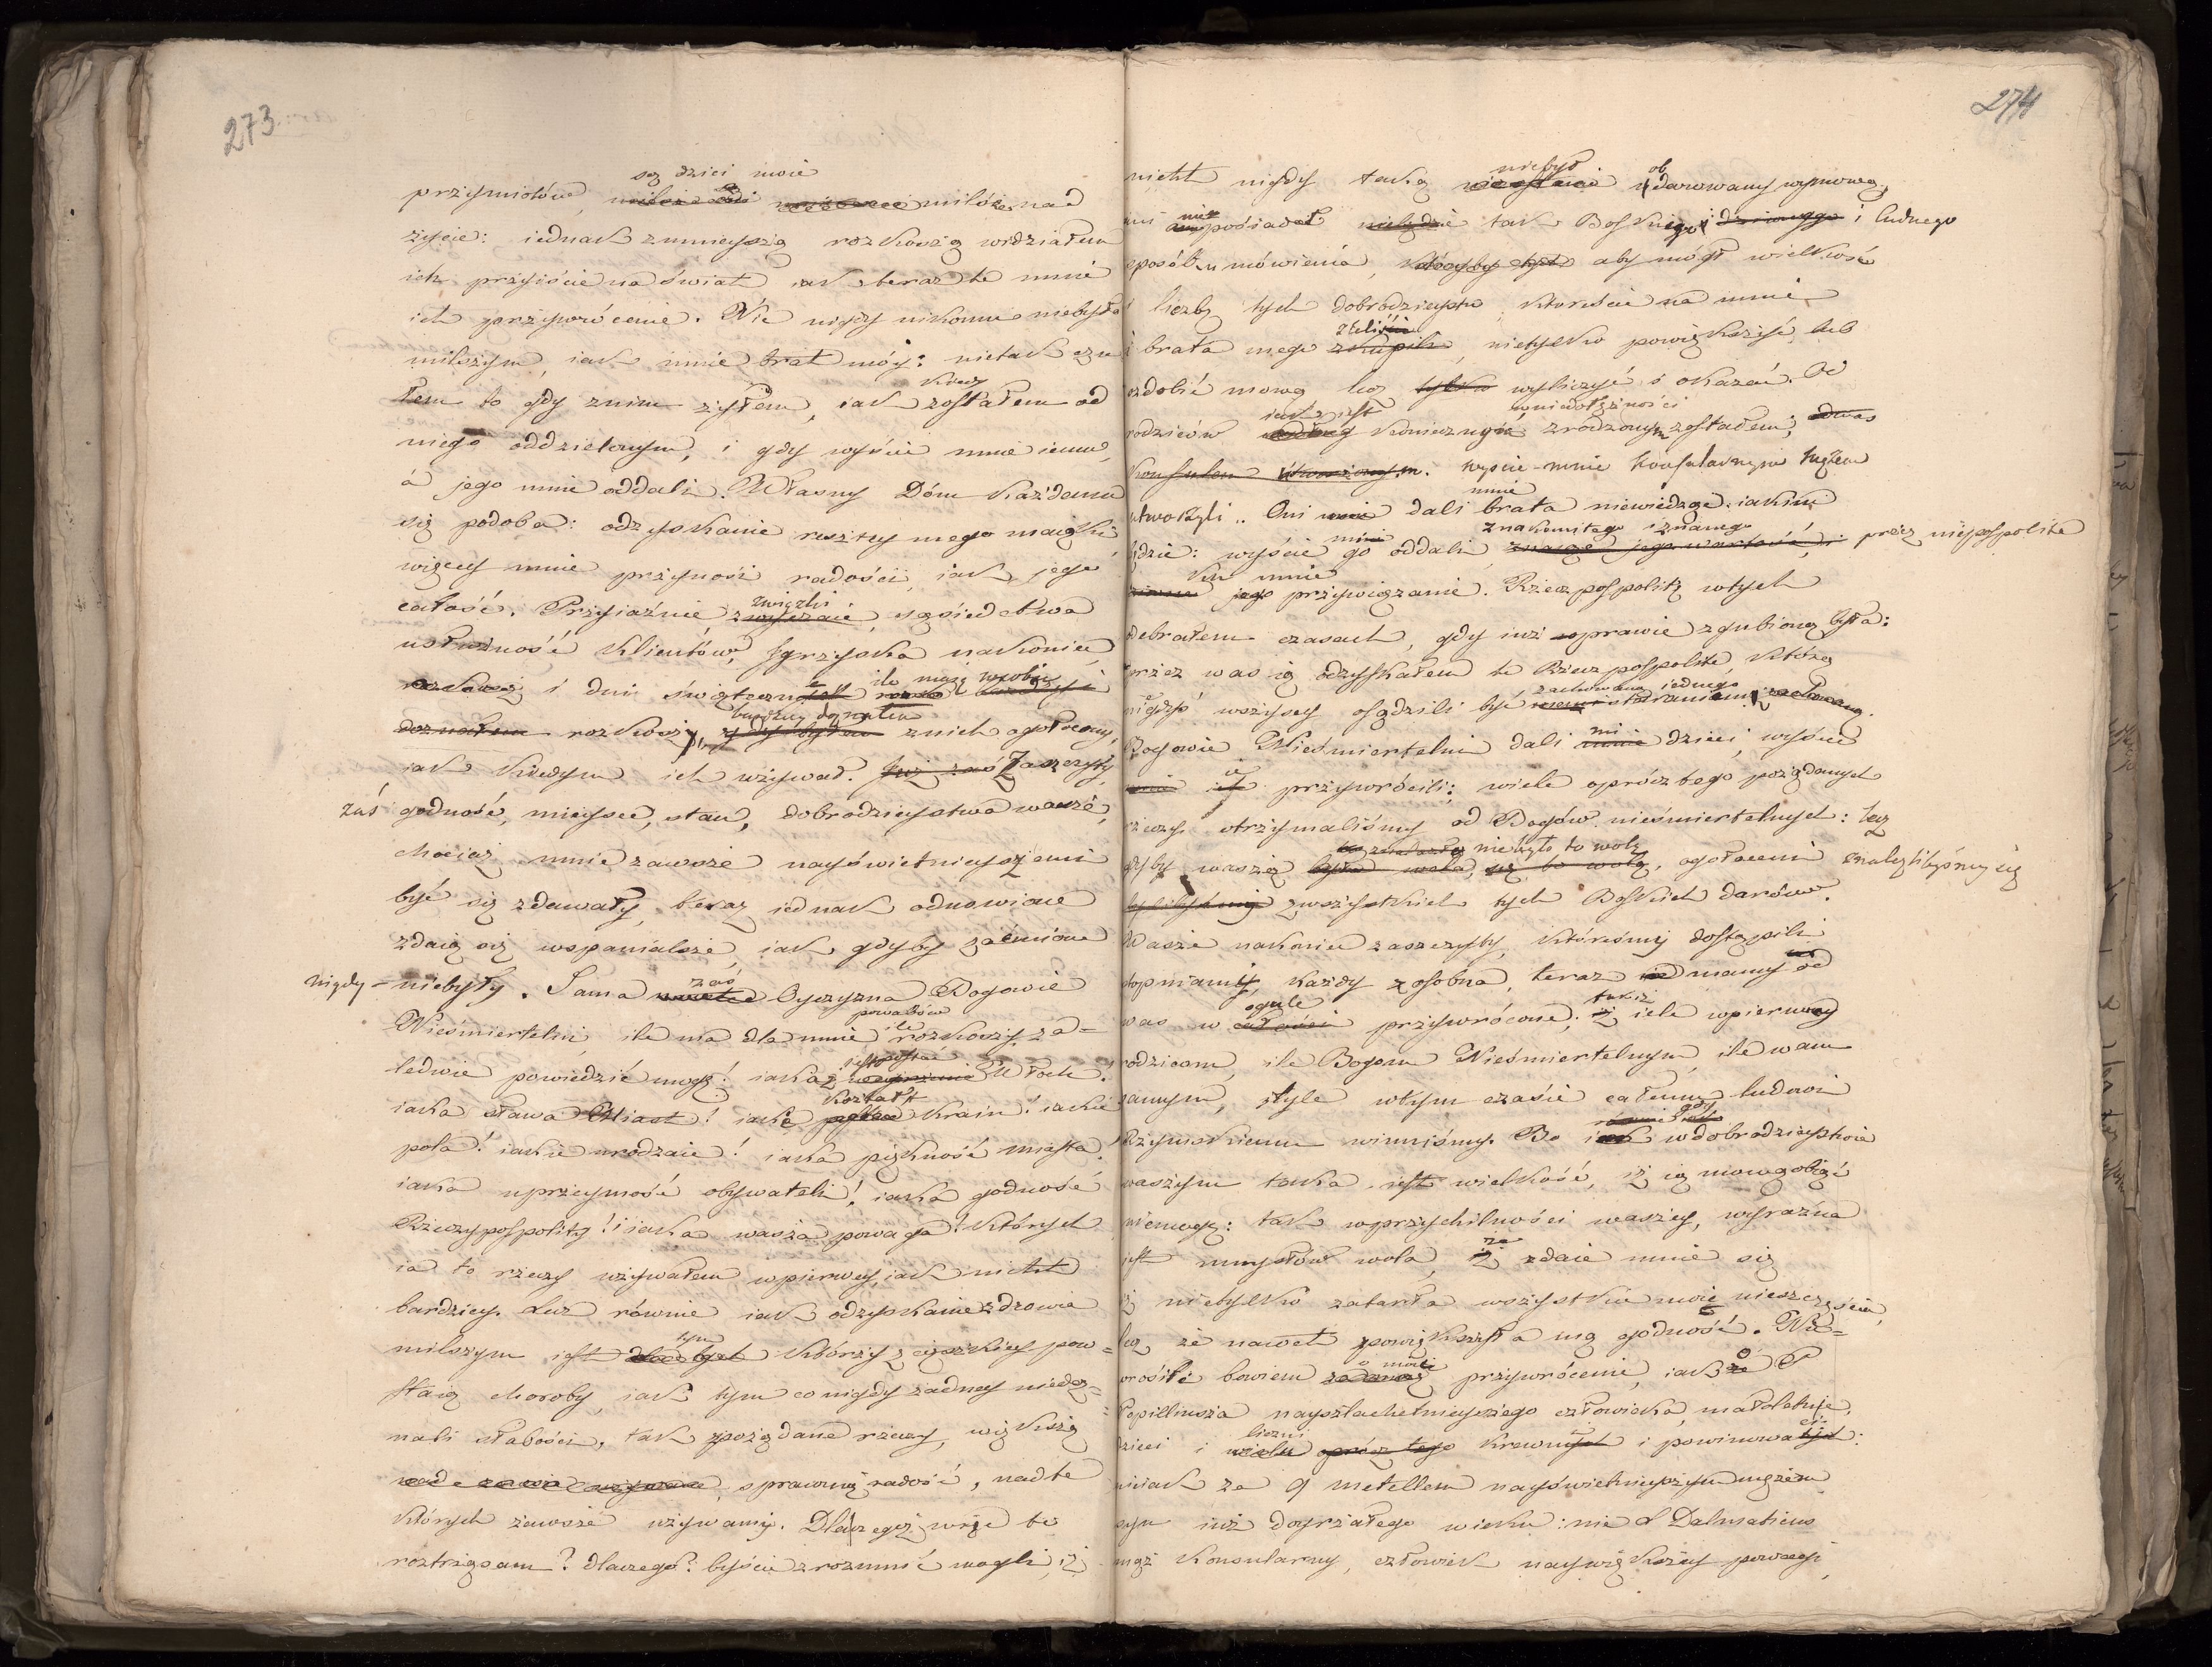 273
są dzieci moie
przymiotów, milsze nad
życie: iednak z mnieyszą rozkoszą widziałem
ich przyiście na świat iak teraz te mnie
ich przywrócenie. Nic nigdy nikomu niebyło
milszym, iak mnie brat móy: nietak czu
łem to gdy z nim żyłem, iak kiedy zostałem od
niego oddzielonym, i gdy wyście mnie iemu,
á jego mnie oddali. Własny Dóm każdemu
się podoba: odzyskanie reszty mego maiątku
więcey mnie przynosi radości, iak jego
całość. Przyiaźnie związki zwyczaie, sąsiedztwa
usłużność klientów, Igrzyska nakoniec,
i dni świąteczne ile maią wrobią
bardziey doznałem
doznałem rozkoszy, gdy byłem z nich ogołocony,
iak kiedym ich używał. Już zaś Zaszczyty,
zaś godność, mieysce, stan, dobrodzieystwa wasze,
chociaż mnie zawsze nayświetnieyszemi
być się zdawały, teraz iednak odnowione
zdaią się wspanialsze, iak gdyby zaćmione
nigdy = niebyły. Sama zaś Oyczyzna Bogowie
powabów
Nieśmiertelni, ile ma dla mnie ile rozkoszy, za=
iest postać
ledwie powiedzieć mogę! iakaż Włoch!
kształt
iaka sława Miast! iaki krain! iakie
pola! iakie urodzaie! iaka piękność miasta!
iaka uprzeymość obywateli! iaka godność
Rzeczypospolity! i iaka wasza powaga! Których
ia to rzeczy używałem wpierwey, iak nicht
bardziey. Lecz równie iak odzyskanie zdrowie
milszym iest tym którzy z ciężkiey pow=
staią choroby, iak tym co nigdy żadney niedoz=
nali słabości, tak pożądane rzeczy, większą
sprawuią radość, nad te
których zawsze używamy. Dla czegoż więc to
roztrząsam? dlaczego? byście zrozumieć mogli, iż
274
niebył ob
nicht nigdy taką udarowany wymową,
ani nieposiadał tak Boskiego i dziwnego i cudnego
sposobu mówienia, któryby był aby mógł wielkość
i liczbę tych dobrodzieystw, któreście na mnie
zleliście
i brata mego zkupili, nietylko powiększyć, lub
ozdobić mową lecz tylko wyliczyć i okazać. Od
iak iest w niedołężności
rodziców koniecznym zrodzonym zostałem; od was
konsulem utworzonym. wyście mnie konsularnym mężem
mnie
utworzyli.. Oni dali brata niewiedząc iakim
mnie znakomitego i znanego
będzie: wyście go oddali, znaiąc jego wartość, i przez niepospolite
ku mnie
jego przywiązanie. Rzeczpospolitą w tych
odebrałem czasach, gdy iuż prawie zgubioną była:
przez was ią odzyskałem te Rzeczpospolite, którą
zachowaną iednego
niegdyś wszyscy osądzili być staraniem zachowaną.
mi
Bogowie Nieśmiertelni dali mnie dzieci, wyście
ie przywrócili; wiele oprócz tego pożądanych
rzeczy otrzymaliśmy od Bogów nieśmiertelnych: lecz
nie było to wolą
gdyby waszą była wola, ogołoceni znaleźlibyśmy się
z wszystkich tych Boskich darów.
Wasze nakoniec zaszczyty, któreśmy dostąpili
stopniami, każdy z osobna, teraz mamy od
ogule takiż
was w całości przywrócone; iż iele wpierwey
rodzicom, ile Bogom Nieśmiertelnym, ile wam
samym, tyle w tym czasie całemu ludowi
Rzymskiemu winniśmy. Bo iak w dobrodzieystwie
waszym taka iest wielkość, iż ią mową obiąć
niemogę: tak w przychilności waszey, wyraźna
że
iest umysłów wola, iż zdaie mnie się
iż nietylko zatarła wszystkie moie nieszczęścia,
lecz że nawet powiększyła mą godność. Nie=
o moie
prosiłi bowiem zadaniem przywrócenie, iak o P
Popilliusza nayszlachetnieyszego człowieka, małoletnie,
liczni
dzieci i wielu oprócz tego krewni i powinowaci:
nieiak za Q Metellem nayświetnieyszym mężem
syn iuż doyrzałego wieku: nie L Dalmaticus
mąż Konsularny, człowiek naywiększey powagi,